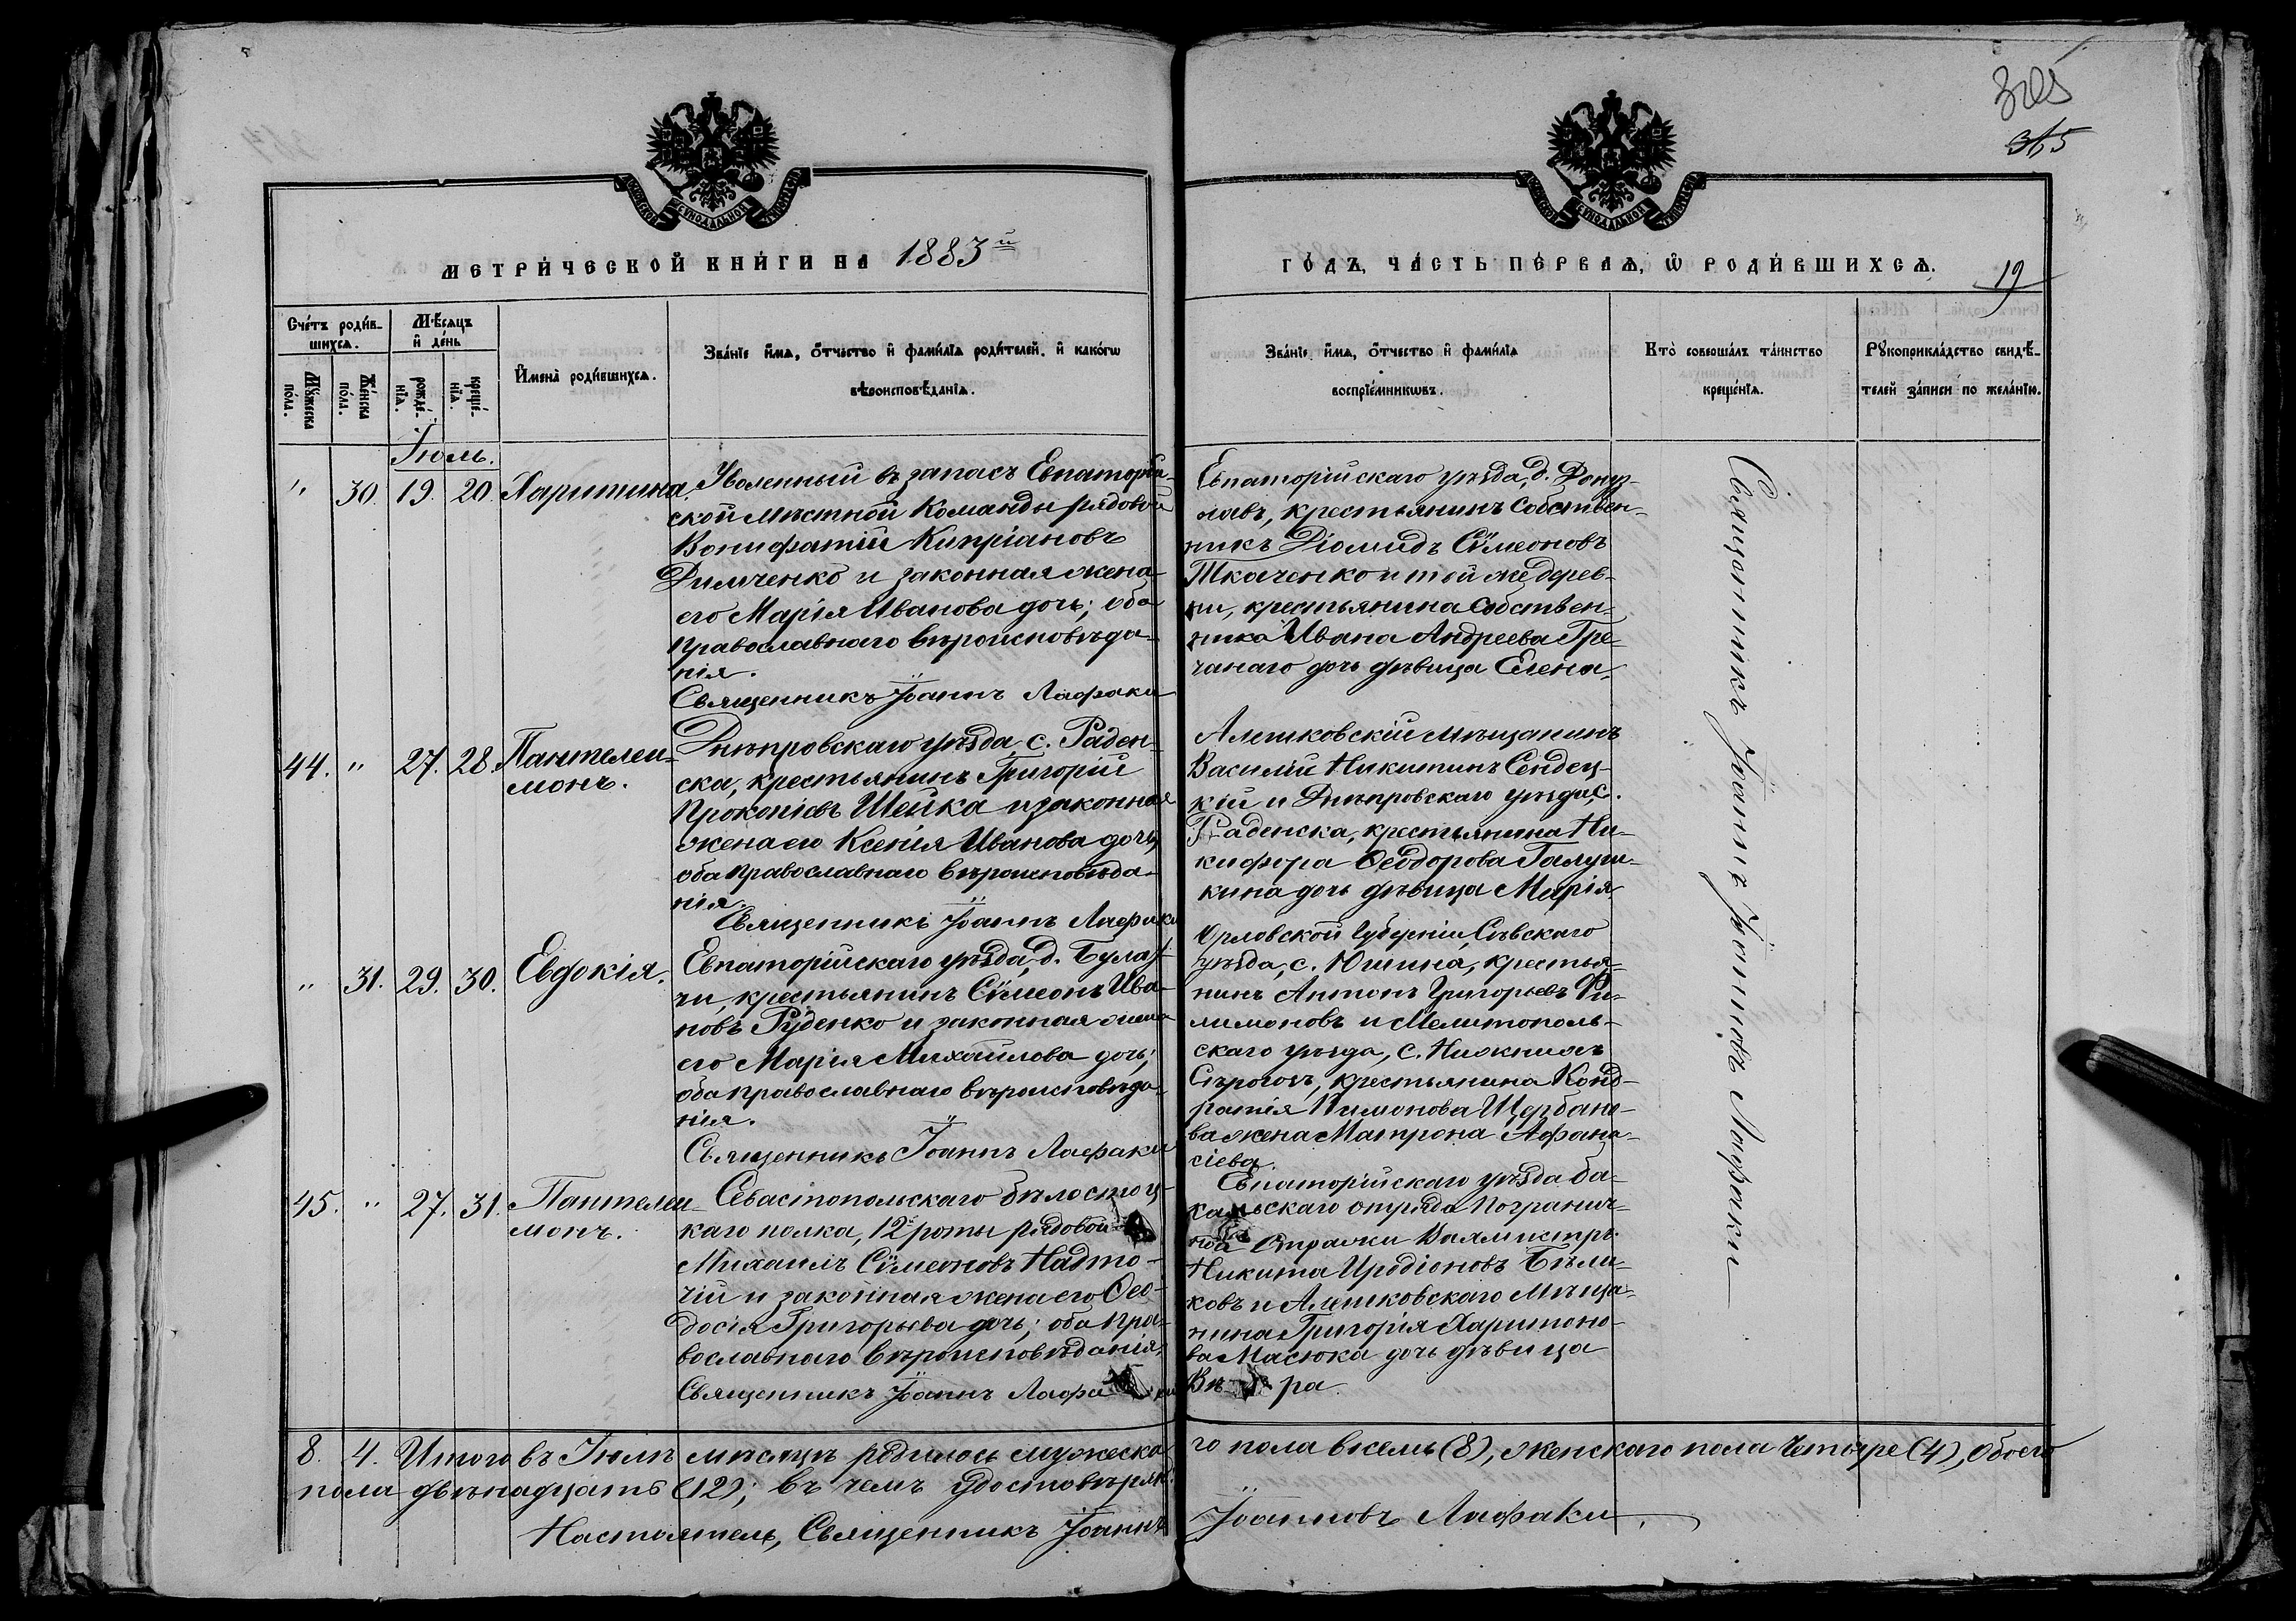 365
365
МЕТРИЧЕСКОЙ КНИГИ НА 1883й
ГОДЪ, ЧАСТЬ ПЕРВАЯ, Ѡ РОДИВШИХСЯ.
19
Счетъ родив-
шихся.
Мужеска
пола.
Женска
пола.
Мѣсяцъ
и день
рожде-
нія.
креще-
нія.
Имена родившихся.
Званіе имя, отчество и фамилія родителей, и какогѡ
вѣроисповѣданія.
Званіе, имя, отчество и фамилія
воспріемникѡвъ.
Кто совершалъ таинство
крещенія.
Рукоприкладство свидѣ-
телей записи по желанію.
Іюль.
" 30. 19. 20. Харитина.
Уволенный въ запасъ Евпаторій-
ской Мѣстной Команды рядовой
Вонифатій Кипріановъ
Димченко и законная жена
его Марія Иванова дочь; оба
православнаго вѣроисповѣда-
нія.
Священникъ Іоаннъ Лафаки
Евпаторійскаго уѣзда, д. Донуз-
лавъ, крестьянинъ собствен-
никъ Діомидъ Сѵмеоновъ
Ткаченко и той же дерев-
ни, крестьянина собствен-
ника Ивана Андреева Гре-
чанаго дочь дѣвица Елена.
44. " 27. 28. Пантелеи-
монъ.
Днѣпровскаго уѣзда, с. Раден-
ска, крестьянинъ Григорій
Прокопіевъ Шейка и законная
жена его Ксенія Иванова дочь;
оба православнаго вѣроисповѣда-
нія.
Священникъ Іоаннъ Лафаки
Алешковскій мѣщанинъ
Василій Никитинъ Сендец-
кій и Днѣпровскаго уѣзда, с.
Раденска, крестьянина Ни-
кифора Ѳеодорова Галуш-
кина дочь дѣвица Марія.
" 31. 29. 30. Евдокія.
Евпаторійскаго уѣзда, д. Булат-
чи, крестьянинъ Сѵмеонъ Ива-
новъ Руденко и законная жена
его Марія Михайлова дочь;
оба православнаго вѣроисповѣда-
нія.
Священникъ Іоаннъ Лафаки
Орловской Губерніи, Сѣвскаго
уѣзда, с. Юшина, крестья-
нинъ Антонъ Григорьевъ Фи-
лимоновъ и Мелитополь-
скаго уѣзда, с. Нижнихъ
Сѣрогозъ, крестьянина Конд-
ратія Пимонова Щербане-
ва жена Матрона Аѳана-
сіева.
45. " 27. 31. Пантелеи-
монъ.
Севастопольскаго бѣлостоц-
каго полка, 12й роты рядовой
Михаилъ Сѵмеоновъ Надто-
чій и законная жена его Ѳео-
досія Григорьева дочь; оба пра-
вославнаго вѣроисповѣданія.
Священникъ Іоаннъ Лафаки
Евпаторійскаго уѣзда ба-
кальскаго отряда Погранич-
ной Стражи Вахмистръ
Никита Иродіоновъ Бѣли-
ковъ и Алешковскаго мѣща-
нина Григорія Харитоно-
ва Масюка дочь дѣвица
Вѣра.
Священникъ Іоаннъ Іоанновъ Лафаки
8. 4. Итого въ Іюлѣ мѣсяцѣ родилось мужеска-
го пола восемь (8), женскаго пола четыре (4), обоего
пола двѣнадцать (12); въ чемъ удостовѣряю.
Настоятель, Священникъ Іоаннъ
Іоанновъ Лафаки.